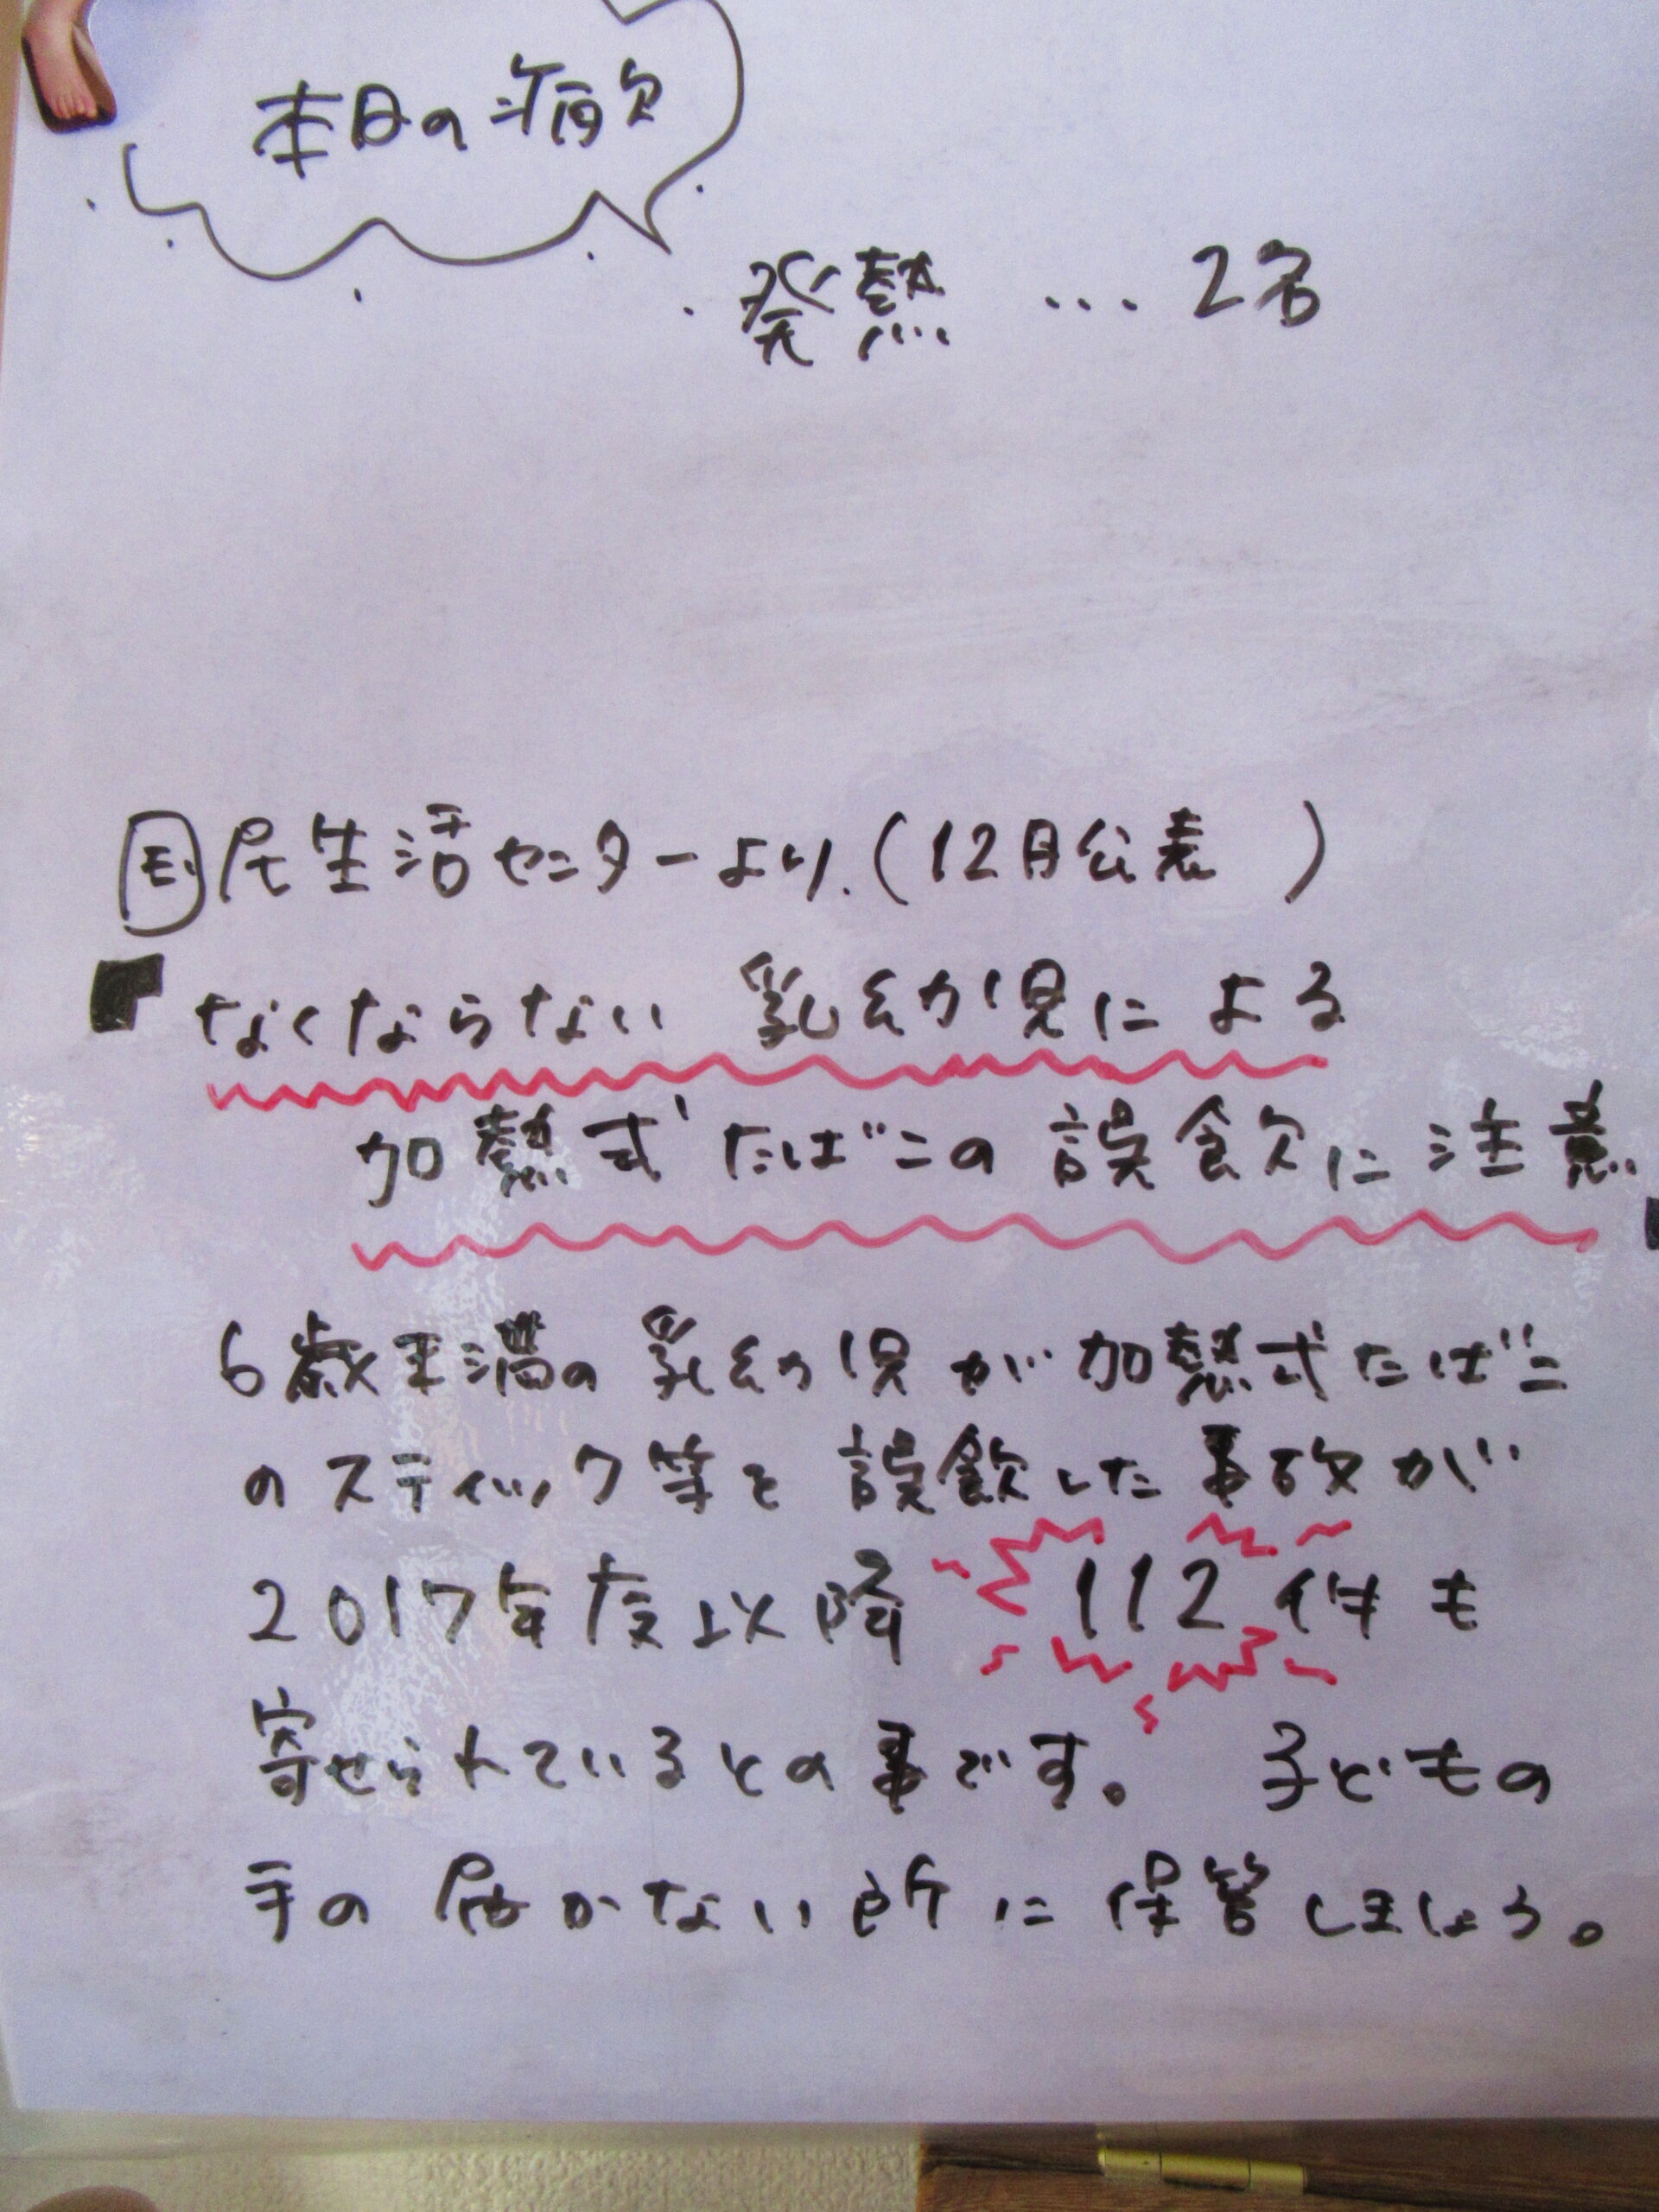 本日の病欠
発熱 … 2名
国民生活センターより.(12月公表 )
なくならない 乳幼児による
加熱式たばこの 誤飲に注意
6歳未満の 乳幼児が加熱式たばこ
のスティック等を 誤飲した事故が
2017年度以降 112件も
寄せられているとの事です。 子どもの
手の届かない所に保管しましょう。